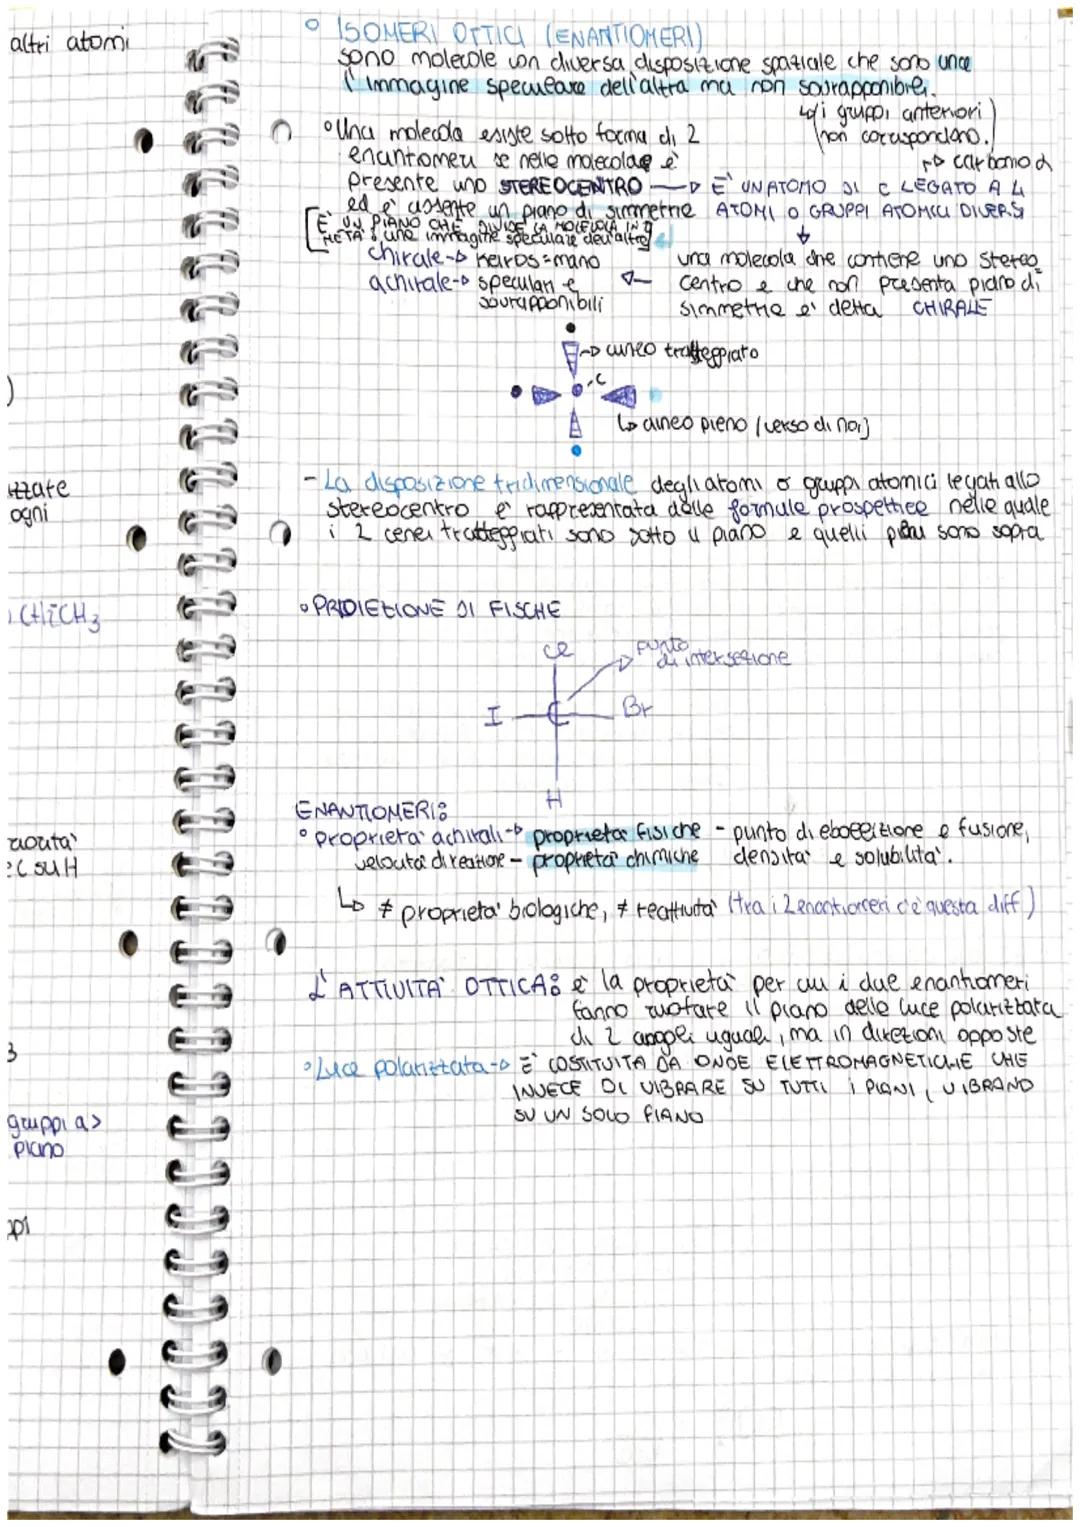 altri atomi
)
izzate
ogni
CH2CH3
C su H
3
gruppi a>
piano
ppi
° ISOMERI OTTICI (ENANTIOMERI)
sono molecole con diversa disposizione spaziale che sono una
l'immagine speculare dell'altra ma non sovrapponibili.
↳(i gruppi anteriori
non corrispondono.)
° Una molecola esiste sotto forma di 2
enantomeri se nelle molecolae è
presente uno STEREOCENTRO —▷ E' UN ATOMO DI C LEGATO A 4
↱ carbonio α
ed e' assente un piano di simmetrie ATOMI O GRUPPI ATOMICI DIVERSI
[E' UN PIANO CHE DIVIDE LA MOLECOLA IN 2
META': una immagine speculare dell'altra]
chirale-▷ keiros=mano
achirale-▷ speculari e
sovrapponibili
una molecola che contiene uno stereo
centro e che non presenta piano di
simmetrie e' detta CHIRALE
-▷ cuneo tratteggiato
C
↳ cuneo pieno (verso di noi)
- La disposizione tridimensionale degli atomi o gruppi atomici legati allo
stereocentro e' rappresentata dalle formule prospettice nelle quale
i 2 cenei tratteggiati sono sotto il piano e quelli pieni sono sopra
° PROIEZIONE DI FISCHE
Cl
punto
di intersezione
I C Br
H
ENANTIOMERI:
° proprieta' achirali-▷ proprieta' fisiche - punto di ebollizione e fusione,
velocita' di reazione - proprieta' chimiche densita' e solubilita'.
↳ ≠ proprieta' biologiche, ≠ reattivita' (tra i 2 enantiomeri c'e' questa diff)
L'ATTIVITA' OTTICA: e' la proprieta' per cui i due enantiomeri
fanno ruotare il piano delle luce polarizzata
di 2 angoli uguali, ma in direzioni opposte
° Luce polarizzata-▷ E' COSTITUITA DA ONDE ELETTROMAGNETICHE CHE
INVECE DI VIBRARE SU TUTTI i PIANI, VIBRANO
SU UN SOLO PIANO